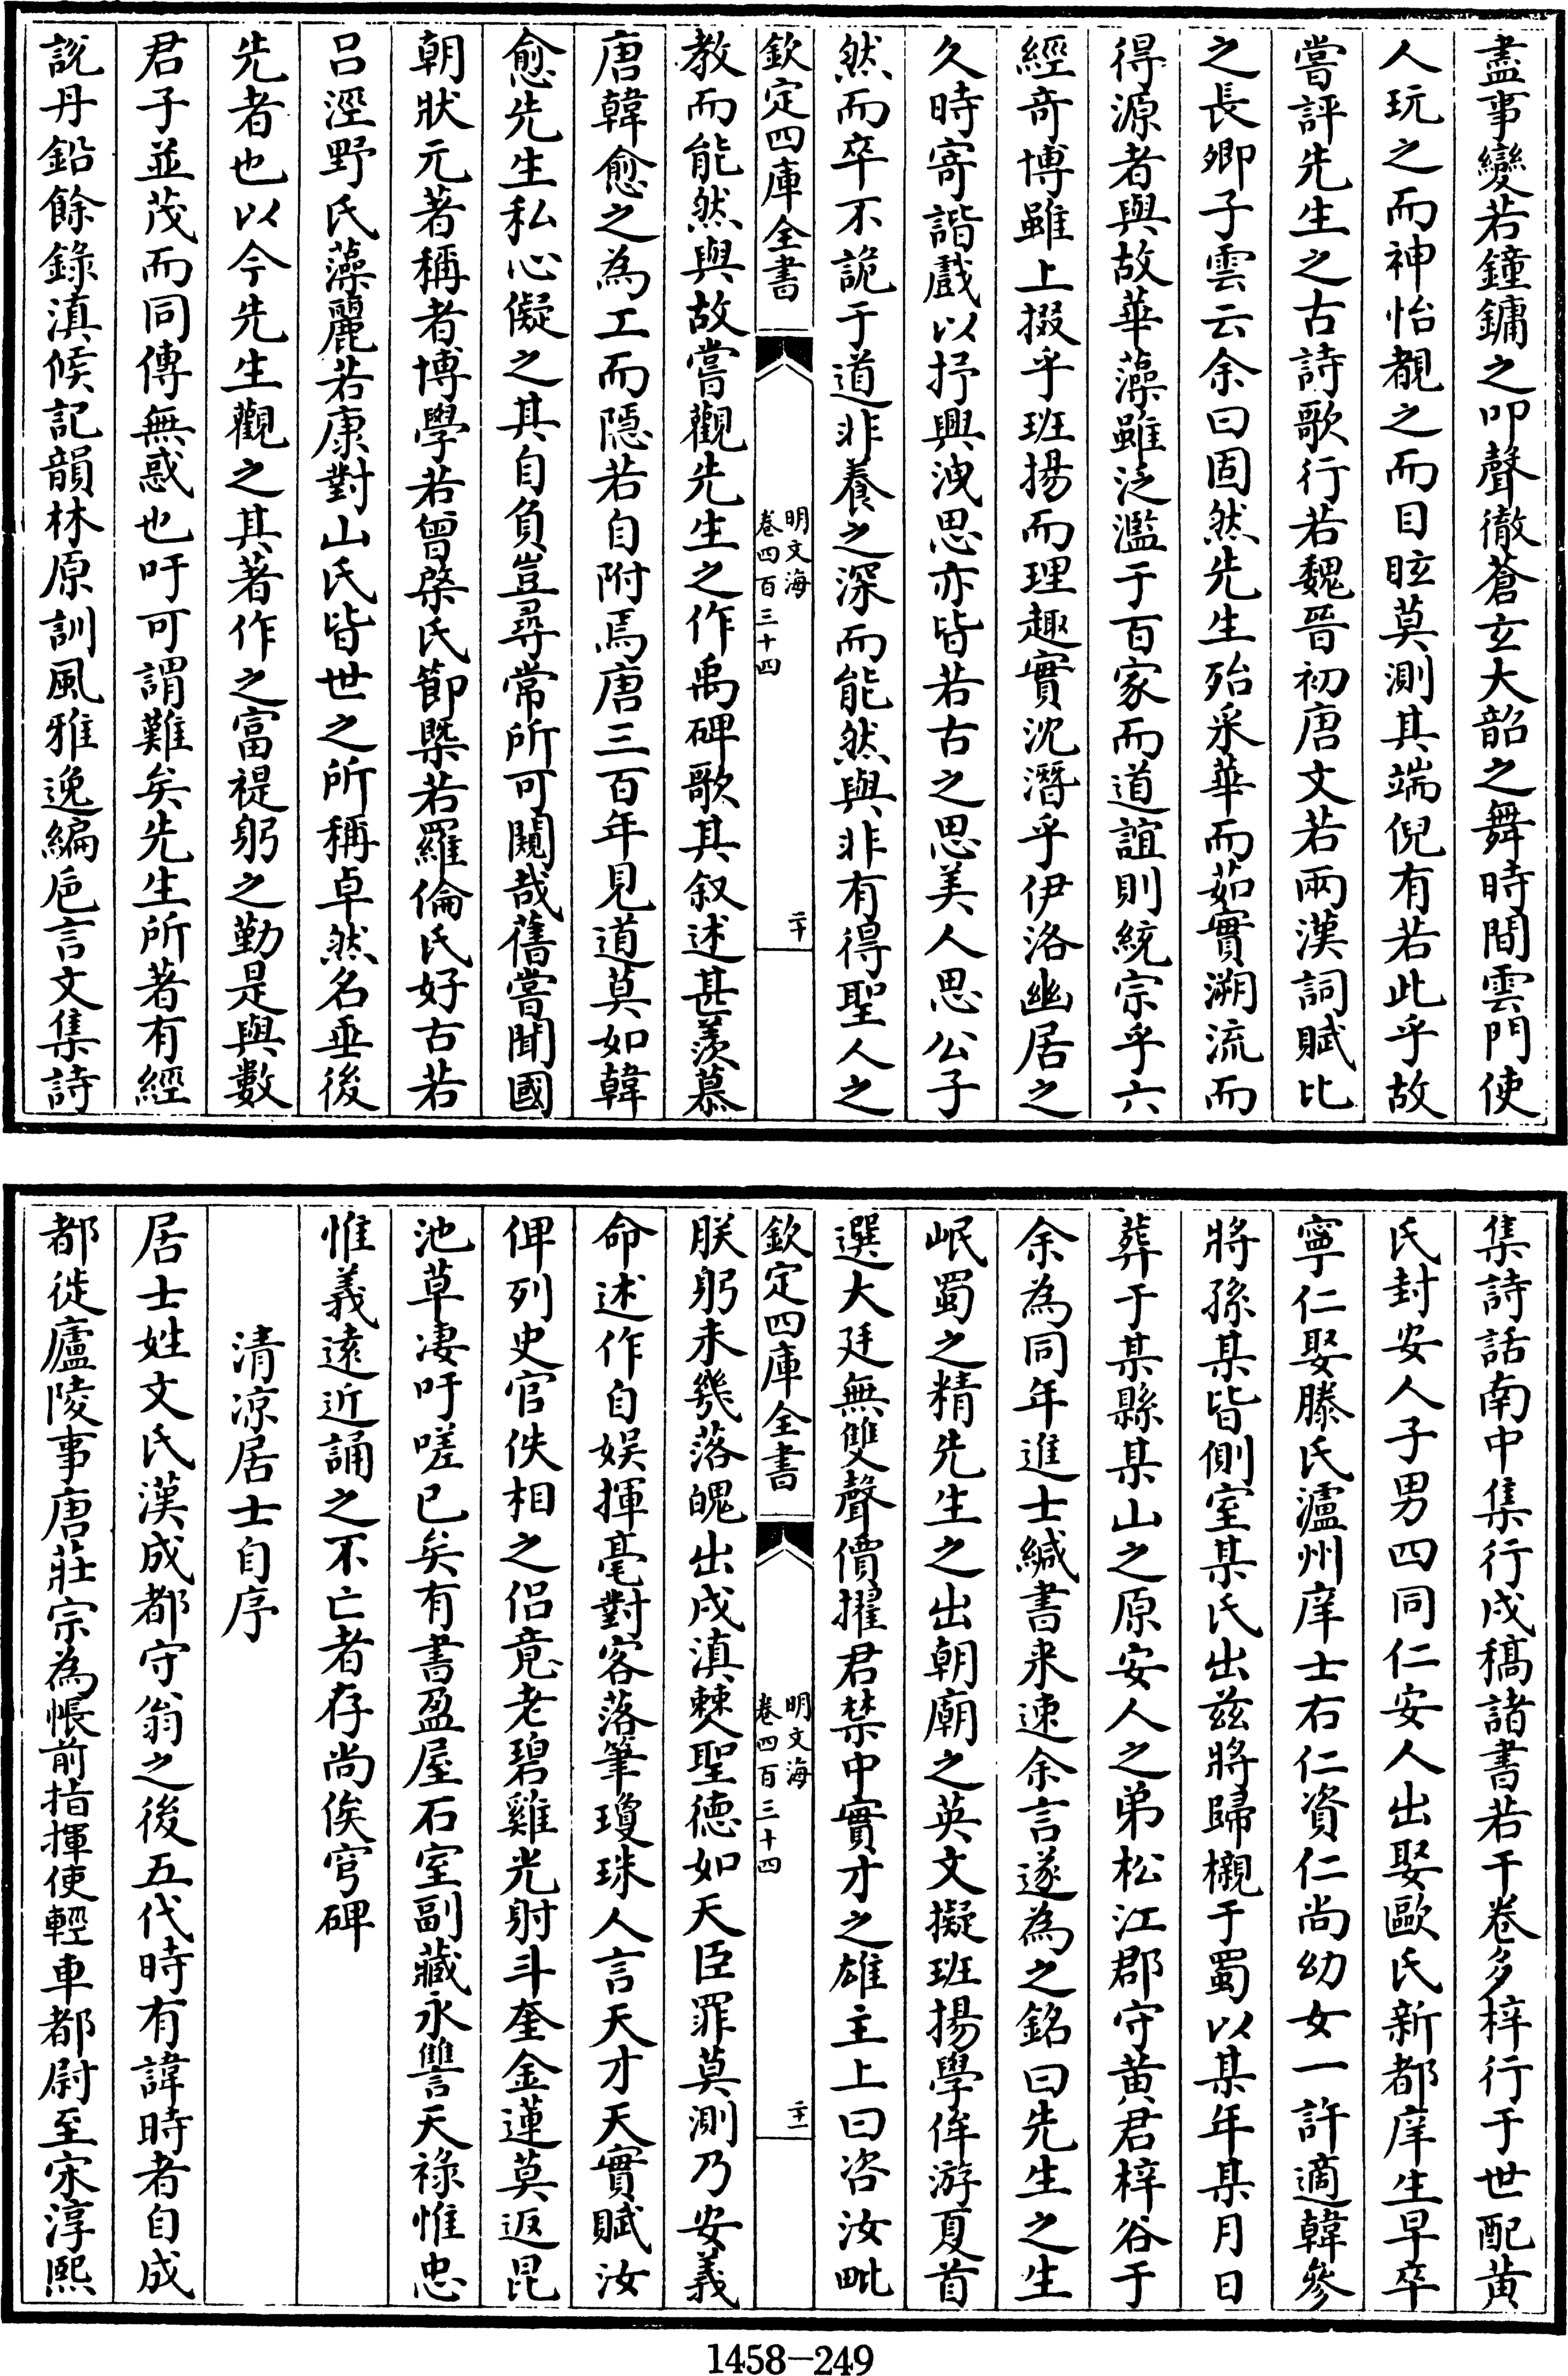 盡事變若鐘鏞之叩聲徹蒼玄大韶之舞時間雲門使
人玩之而神怡覩之而目眩莫測其端倪有若此乎故
嘗評先生之古詩歌行若魏晉初唐文若兩漢詞賦比
之長卿子雲云余曰固然先生殆采華而茹實溯流而
得源者與故華藻雖泛濫于百家而道誼則統宗乎六
經奇博雖上掇乎班揚而理趣實沈潛乎伊洛幽居之
久時寄諧戲以抒興洩思亦皆若古之思美人思公子
然而卒不詭于道非養之深而能然與非有得聖人之
欽定四庫全書
明文海
卷四百三十四
二十
教而能然與故嘗觀先生之作禹碑歌其叙述甚羨慕
唐韓愈之為工而隠若自附焉唐三百年見道莫如韓
愈先生私心儗之其自負豈尋常所可闚哉舊嘗聞國
朝狀元著稱者博學若曾棨氏節槩若羅倫氏好古若
呂涇野氏藻麗若康對山氏皆世之所稱卓然名垂後
先者也以今先生觀之其著作之富禔躬之勤是與數
君子並茂而同傳無惑也吁可謂難矣先生所著有經
說丹鉛餘錄滇候記韻林原訓風雅逸編巵言文集詩
集詩話南中集行戍稿諸書若干卷多梓行于世配黃
氏封安人子男四同仁安人出娶歐氏新都庠生早卒
寧仁娶滕氏瀘州庠士右仁資仁尚幼女一許適韓參
將孫某皆側室某氏出茲將歸櫬于蜀以某年某月日
葬于某縣某山之原安人之弟松江郡守黃君梓谷于
余為同年進士緘書来速余言遂為之銘曰先生之生
岷蜀之精先生之出朝廟之英文擬班揚學侔游夏首
選大廷無雙聲價擢君禁中實才之雄主上曰咨汝毗
欽定四庫全書
明文海
卷四百三十四
二十一
朕躬未幾落魄出戍滇僰聖德如天臣罪莫測乃安義
命述作自娱揮毫對客落筆瓊珠人言天才天實賦汝
俾列史官佚相之侣竟老碧雞光射斗奎金蓮莫返昆
池草凄吁嗟已矣有書盈屋石室副藏永讐天祿惟忠
惟義遠近誦之不亡者存尚俟穹碑
清涼居士自序
居士姓文氏漢成都守翁之後五代時有諱時者自成
都徙廬陵事唐莊宗為帳前指揮使輕車都尉至宋淳熙
1458-249